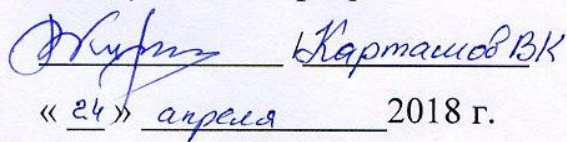 Карташов ВК
« 24 » апреля 2018 г.